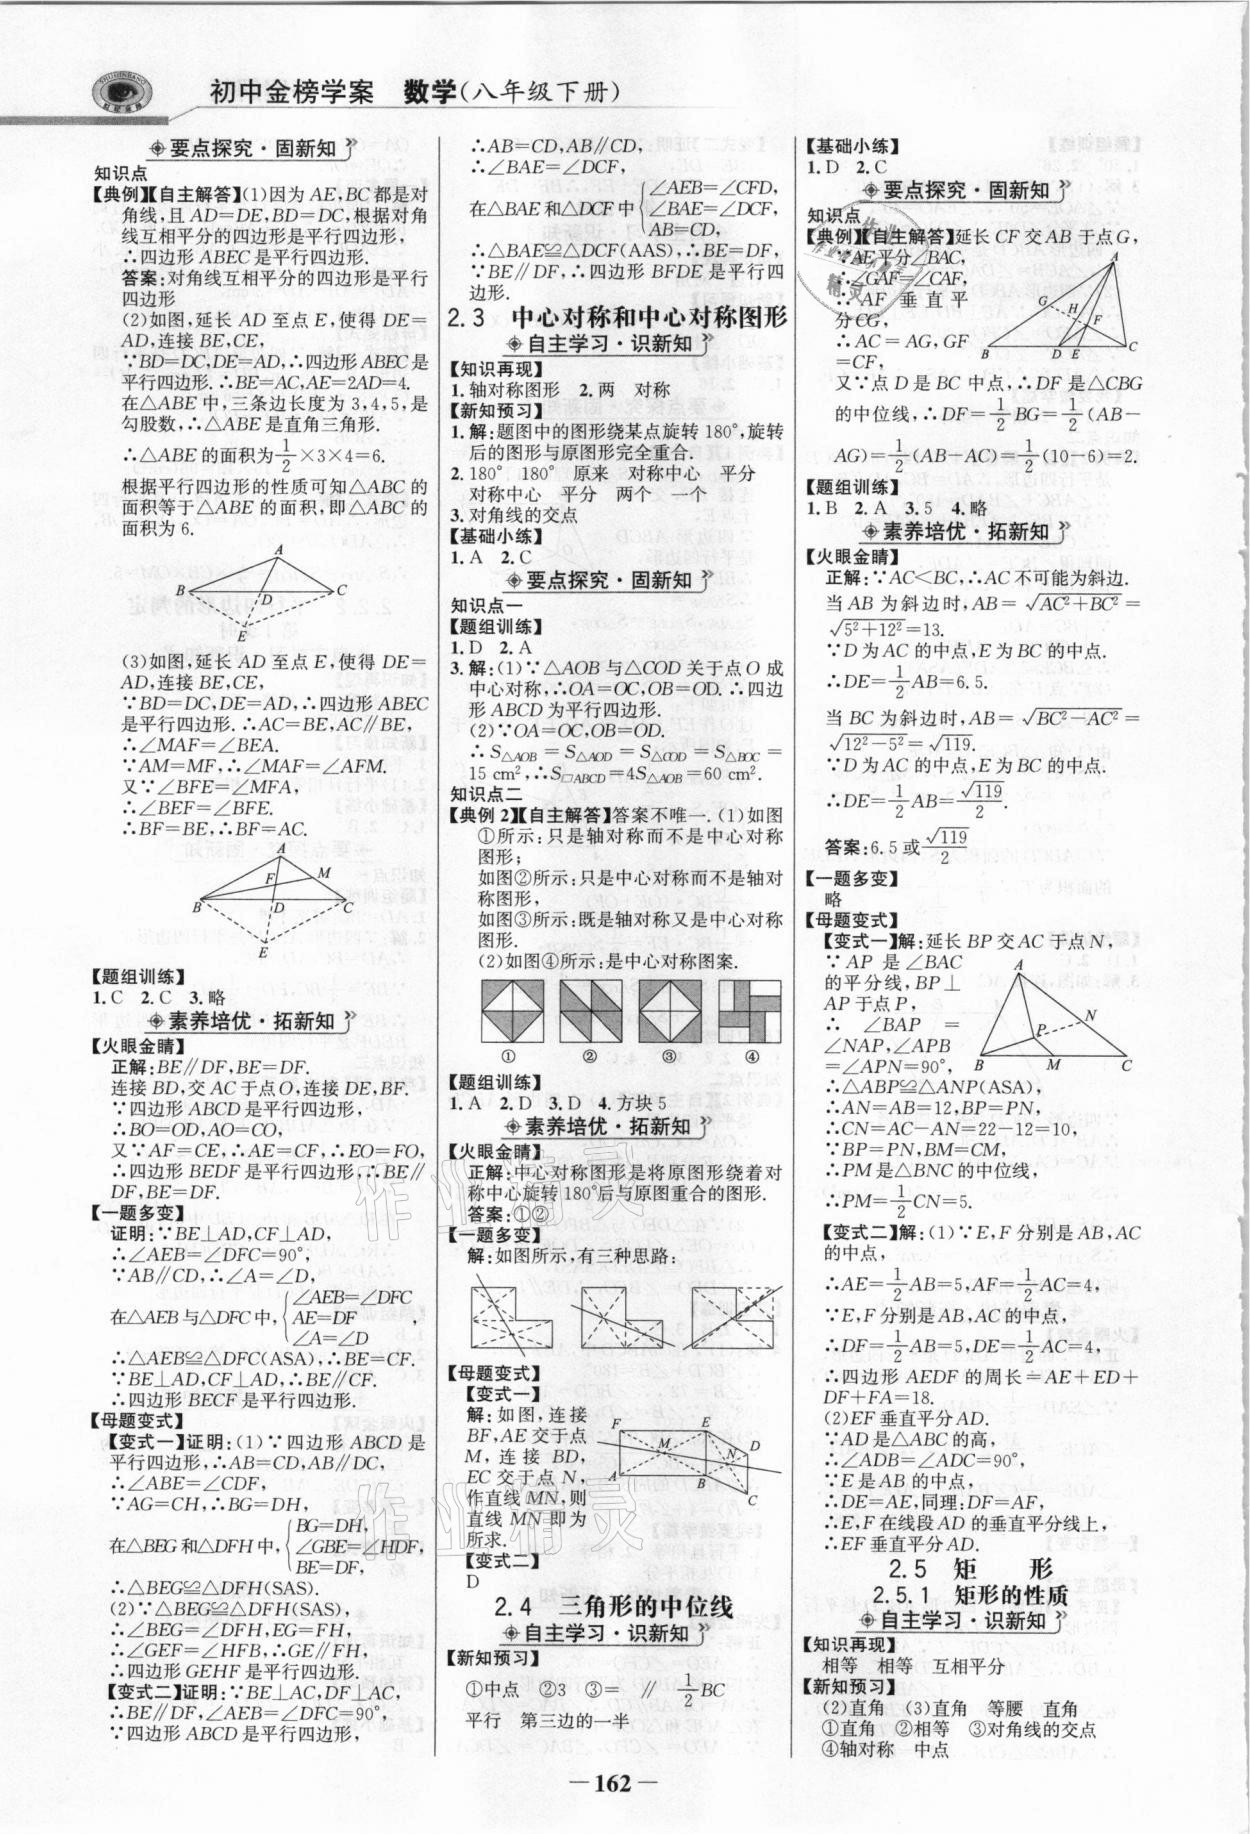 初中金榜学案 数学(八年级下册)
要点探究·固新知
知识点
【典例】【自主解答】(1)因为 AE,BC 都是对
角线,且 AD=DE,BD=DC,根据对角
线互相平分的四边形是平行四边形,
∴四边形 ABEC 是平行四边形.
答案:对角线互相平分的四边形是平行
四边形
(2)如图,延长 AD 至点 E,使得 DE=
AD,连接 BE,CE,
∵BD=DC,DE=AD,∴四边形 ABEC 是
平行四边形.∴BE=AC,AE=2AD=4.
在△ABE 中,三条边长度为 3,4,5,是
勾股数,∴△ABE 是直角三角形.
∴△ABE 的面积为1/2×3×4=6.
根据平行四边形的性质可知△ABC 的
面积等于△ABE 的面积,即△ABC 的
面积为 6.
A
B D C
E
(3)如图,延长 AD 至点 E,使得 DE=
AD,连接 BE,CE,
∵BD=DC,DE=AD,∴四边形 ABEC
是平行四边形.∴AC=BE,AC∥BE,
∴∠MAF=∠BEA.
∵AM=MF,∴∠MAF=∠AFM.
又∵∠BFE=∠MFA,
∴∠BEF=∠BFE.
∴BF=BE,∴BF=AC.
A
F M
B D C
E
【题组训练】
1.C 2.C 3.略
素养培优·拓新知
【火眼金睛】
正解:BE∥DF,BE=DF.
连接 BD,交 AC 于点 O,连接 DE,BF.
∵四边形 ABCD 是平行四边形,
∴BO=OD,AO=CO,
又∵AF=CE,∴AE=CF,∴EO=FO,
∴四边形 BEDF 是平行四边形,∴BE∥
DF,BE=DF.
【一题多变】
证明:∵BE⊥AD,CF⊥AD,
∴∠AEB=∠DFC=90°,
∵AB∥CD,∴∠A=∠D,
在△AEB 与△DFC 中,{∠AEB=∠DFC
AE=DF ,
∠A=∠D
∴△AEB≌△DFC(ASA),∴BE=CF.
∵BE⊥AD,CF⊥AD,∴BE∥CF.
∴四边形 BECF 是平行四边形.
【母题变式】
【变式一】证明:(1)∵四边形 ABCD 是
平行四边形,∴AB=CD,AB∥DC,
∴∠ABE=∠CDF,
∵AG=CH,∴BG=DH,
在△BEG 和△DFH 中,{BG=DH,
∠GBE=∠HDF,
BE=DF,
∴△BEG≌△DFH(SAS).
(2)∵△BEG≌△DFH(SAS),
∴∠BEG=∠DFH,EG=FH,
∴∠GEF=∠HFB,∴GE∥FH,
∴四边形 GEHF 是平行四边形.
【变式二】证明:∵BE⊥AC,DF⊥AC,
∴BE∥DF,∠AEB=∠DFC=90°,
∵四边形 ABCD 是平行四边形,
∴AB=CD,AB∥CD,
∴∠BAE=∠DCF,
在△BAE 和△DCF 中{∠AEB=∠CFD,
∠BAE=∠DCF,
AB=CD,
∴△BAE≌△DCF(AAS),∴BE=DF,
∵BE∥DF,∴四边形 BFDE 是平行四
边形.
2.3 中心对称和中心对称图形
自主学习·识新知
【知识再现】
1.轴对称图形 2.两 对称
【新知预习】
1.解:题图中的图形绕某点旋转 180°,旋转
后的图形与原图形完全重合.
2.180° 180° 原来 对称中心 平分
对称中心 平分 两个 一个
3.对角线的交点
【基础小练】
1.A 2.C
要点探究·固新知
知识点一
【题组训练】
1.D 2.A
3.解:(1)∵△AOB 与△COD 关于点 O 成
中心对称,∴OA=OC,OB=OD.∴四边
形 ABCD 为平行四边形.
(2)∵OA=OC,OB=OD.
∴S△AOB=S△AOD=S△COD=S△BOC=
15 cm²,∴S□ABCD=4S△AOB=60 cm².
知识点二
【典例 2】【自主解答】答案不唯一.(1)如图
①所示:只是轴对称而不是中心对称
图形;
如图②所示:只是中心对称而不是轴对
称图形,
如图③所示:既是轴对称又是中心对称
图形.
(2)如图④所示:是中心对称图案.
① ② ③ ④
【题组训练】
1.A 2.D 3.D 4.方块 5
素养培优·拓新知
【火眼金睛】
正解:中心对称图形是将原图形绕着对
称中心旋转 180°后与原图重合的图形.
答案:①②
【一题多变】
解:如图所示,有三种思路:
【母题变式】
【变式一】
解:如图,连接
BF,AE 交于点
M,连接 BD,
EC 交于点 N,
作直线 MN,则
直线 MN 即为
所求.
F E
M D
N
A B
C
【变式二】
D
2.4 三角形的中位线
自主学习·识新知
【新知预习】
①中点 ②3 ③= ∥ 1/2BC
平行 第三边的一半
【基础小练】
1.D 2.C
要点探究·固新知
知识点
【典例】【自主解答】延长 CF 交 AB 于点 G,
∵AE平分∠BAC,
∴∠GAF=∠CAF,
∵AF 垂直平
分CG,
∴AC=AG,GF
=CF,
A
G H F
B D E C
又∵点 D 是 BC 中点,∴DF 是△CBG
的中位线,∴DF=1/2BG=1/2(AB-
AG)=1/2(AB-AC)=1/2(10-6)=2.
【题组训练】
1.B 2.A 3.5 4.略
素养培优·拓新知
【火眼金睛】
正解:∵AC<BC,∴AC 不可能为斜边.
当 AB 为斜边时,AB=√(AC²+BC²)=
√(5²+12²)=13.
∵D 为 AC 的中点,E 为 BC 的中点.
∴DE=1/2AB=6.5.
当 BC 为斜边时,AB=√(BC²-AC²)=
√(12²-5²)=√119.
∵D 为 AC 的中点,E 为 BC 的中点.
∴DE=1/2AB=√119/2.
答案:6.5 或√119/2
【一题多变】
略
【母题变式】
【变式一】解:延长 BP 交 AC 于点 N,
∵AP 是∠BAC
的平分线,BP⊥
AP 于点 P,
∴∠BAP=
∠NAP,∠APB
=∠APN=90°,
A
N
P
B M C
∴△ABP≌△ANP(ASA),
∴AN=AB=12,BP=PN,
∴CN=AC-AN=22-12=10,
∵BP=PN,BM=CM,
∴PM是△BNC 的中位线,
∴PM=1/2CN=5.
【变式二】解:(1)∵E,F 分别是 AB,AC
的中点,
∴AE=1/2AB=5,AF=1/2AC=4,
∵E,F 分别是 AB,AC 的中点,
∴DF=1/2AB=5,DE=1/2AC=4,
∴四边形 AEDF 的周长=AE+ED+
DF+FA=18.
(2)EF 垂直平分 AD.
∵AD 是△ABC 的高,
∴∠ADB=∠ADC=90°,
∵E 是 AB 的中点,
∴DE=AE,同理:DF=AF,
∴E,F 在线段 AD 的垂直平分线上,
∴EF 垂直平分 AD.
2.5 矩 形
2.5.1 矩形的性质
自主学习·识新知
【知识再现】
相等 相等 互相平分
【新知预习】
(2)直角 (3)直角 等腰 直角
①直角 ②相等 ③对角线的交点
④轴对称 中点
— 162 —
作业精灵
作业精灵